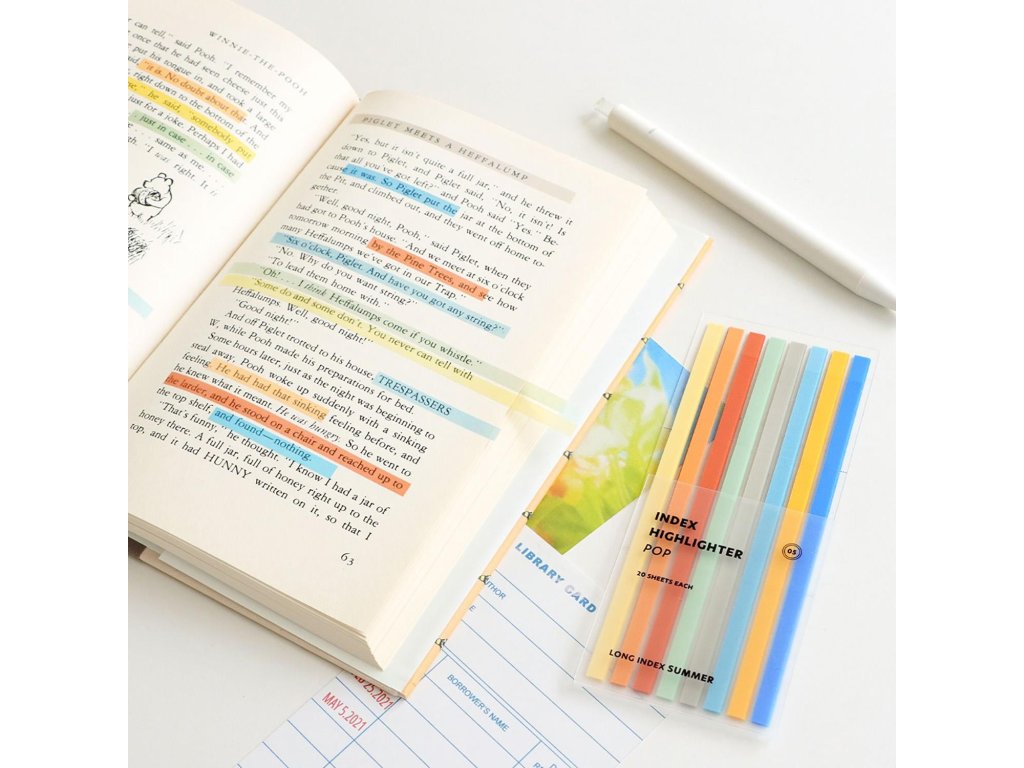 WINNIE-THE-POOH
can tell," said Pooh. "I remember my
once that he had seen cheese just this
put his tongue in, and took a large
"it is. No doubt about that. And
right down to the bottom of the
he said, "somebody put
just for a joke. Perhaps I had
just in case . . . in case
same as me.
"I was right. It is
PIGLET MEETS A HEFFALUMP
"Yes, but it isn't quite a full jar," and he threw it
down to Piglet, and Piglet said, "No, it isn't! Is
that all you've got left?" and Pooh said "Yes." Be-
cause it was. So Piglet put the jar at the bottom of
the Pit, and climbed out, and they went off home to-
gether.
"Well, good night, Pooh," said Piglet, when they
had got to Pooh's house. "And we meet at six o'clock
tomorrow morning by the Pine Trees, and see how
many Heffalumps we've got in our Trap."
"Six o'clock, Piglet. And have you got any string?"
"No. Why do you want string?"
"To lead them home with."
"Oh! . . . I think Heffalumps come if you whistle."
"Some do and some don't. You never can tell with
Heffalumps. Well, good night!"
"Good night!"
And off Piglet trotted to his house, TRESPASSERS
W, while Pooh made his preparations for bed.
Some hours later, just as the night was beginning to
steal away, Pooh woke up suddenly with a sinking
feeling. He had had that sinking feeling before, and
he knew what it meant. He was hungry. So he went to
the larder, and he stood on a chair and reached up to
the top shelf, and found—nothing.
"That's funny," he thought. "I know I had a jar of
honey there. A full jar, full of honey right up to the
top, and it had HUNNY written on it, so that I
63
INDEX
HIGHLIGHTER
POP
05
20 SHEETS EACH
LONG INDEX SUMMER
LIBRARY CARD
BORROWER'S NAME
MAY 5.2021